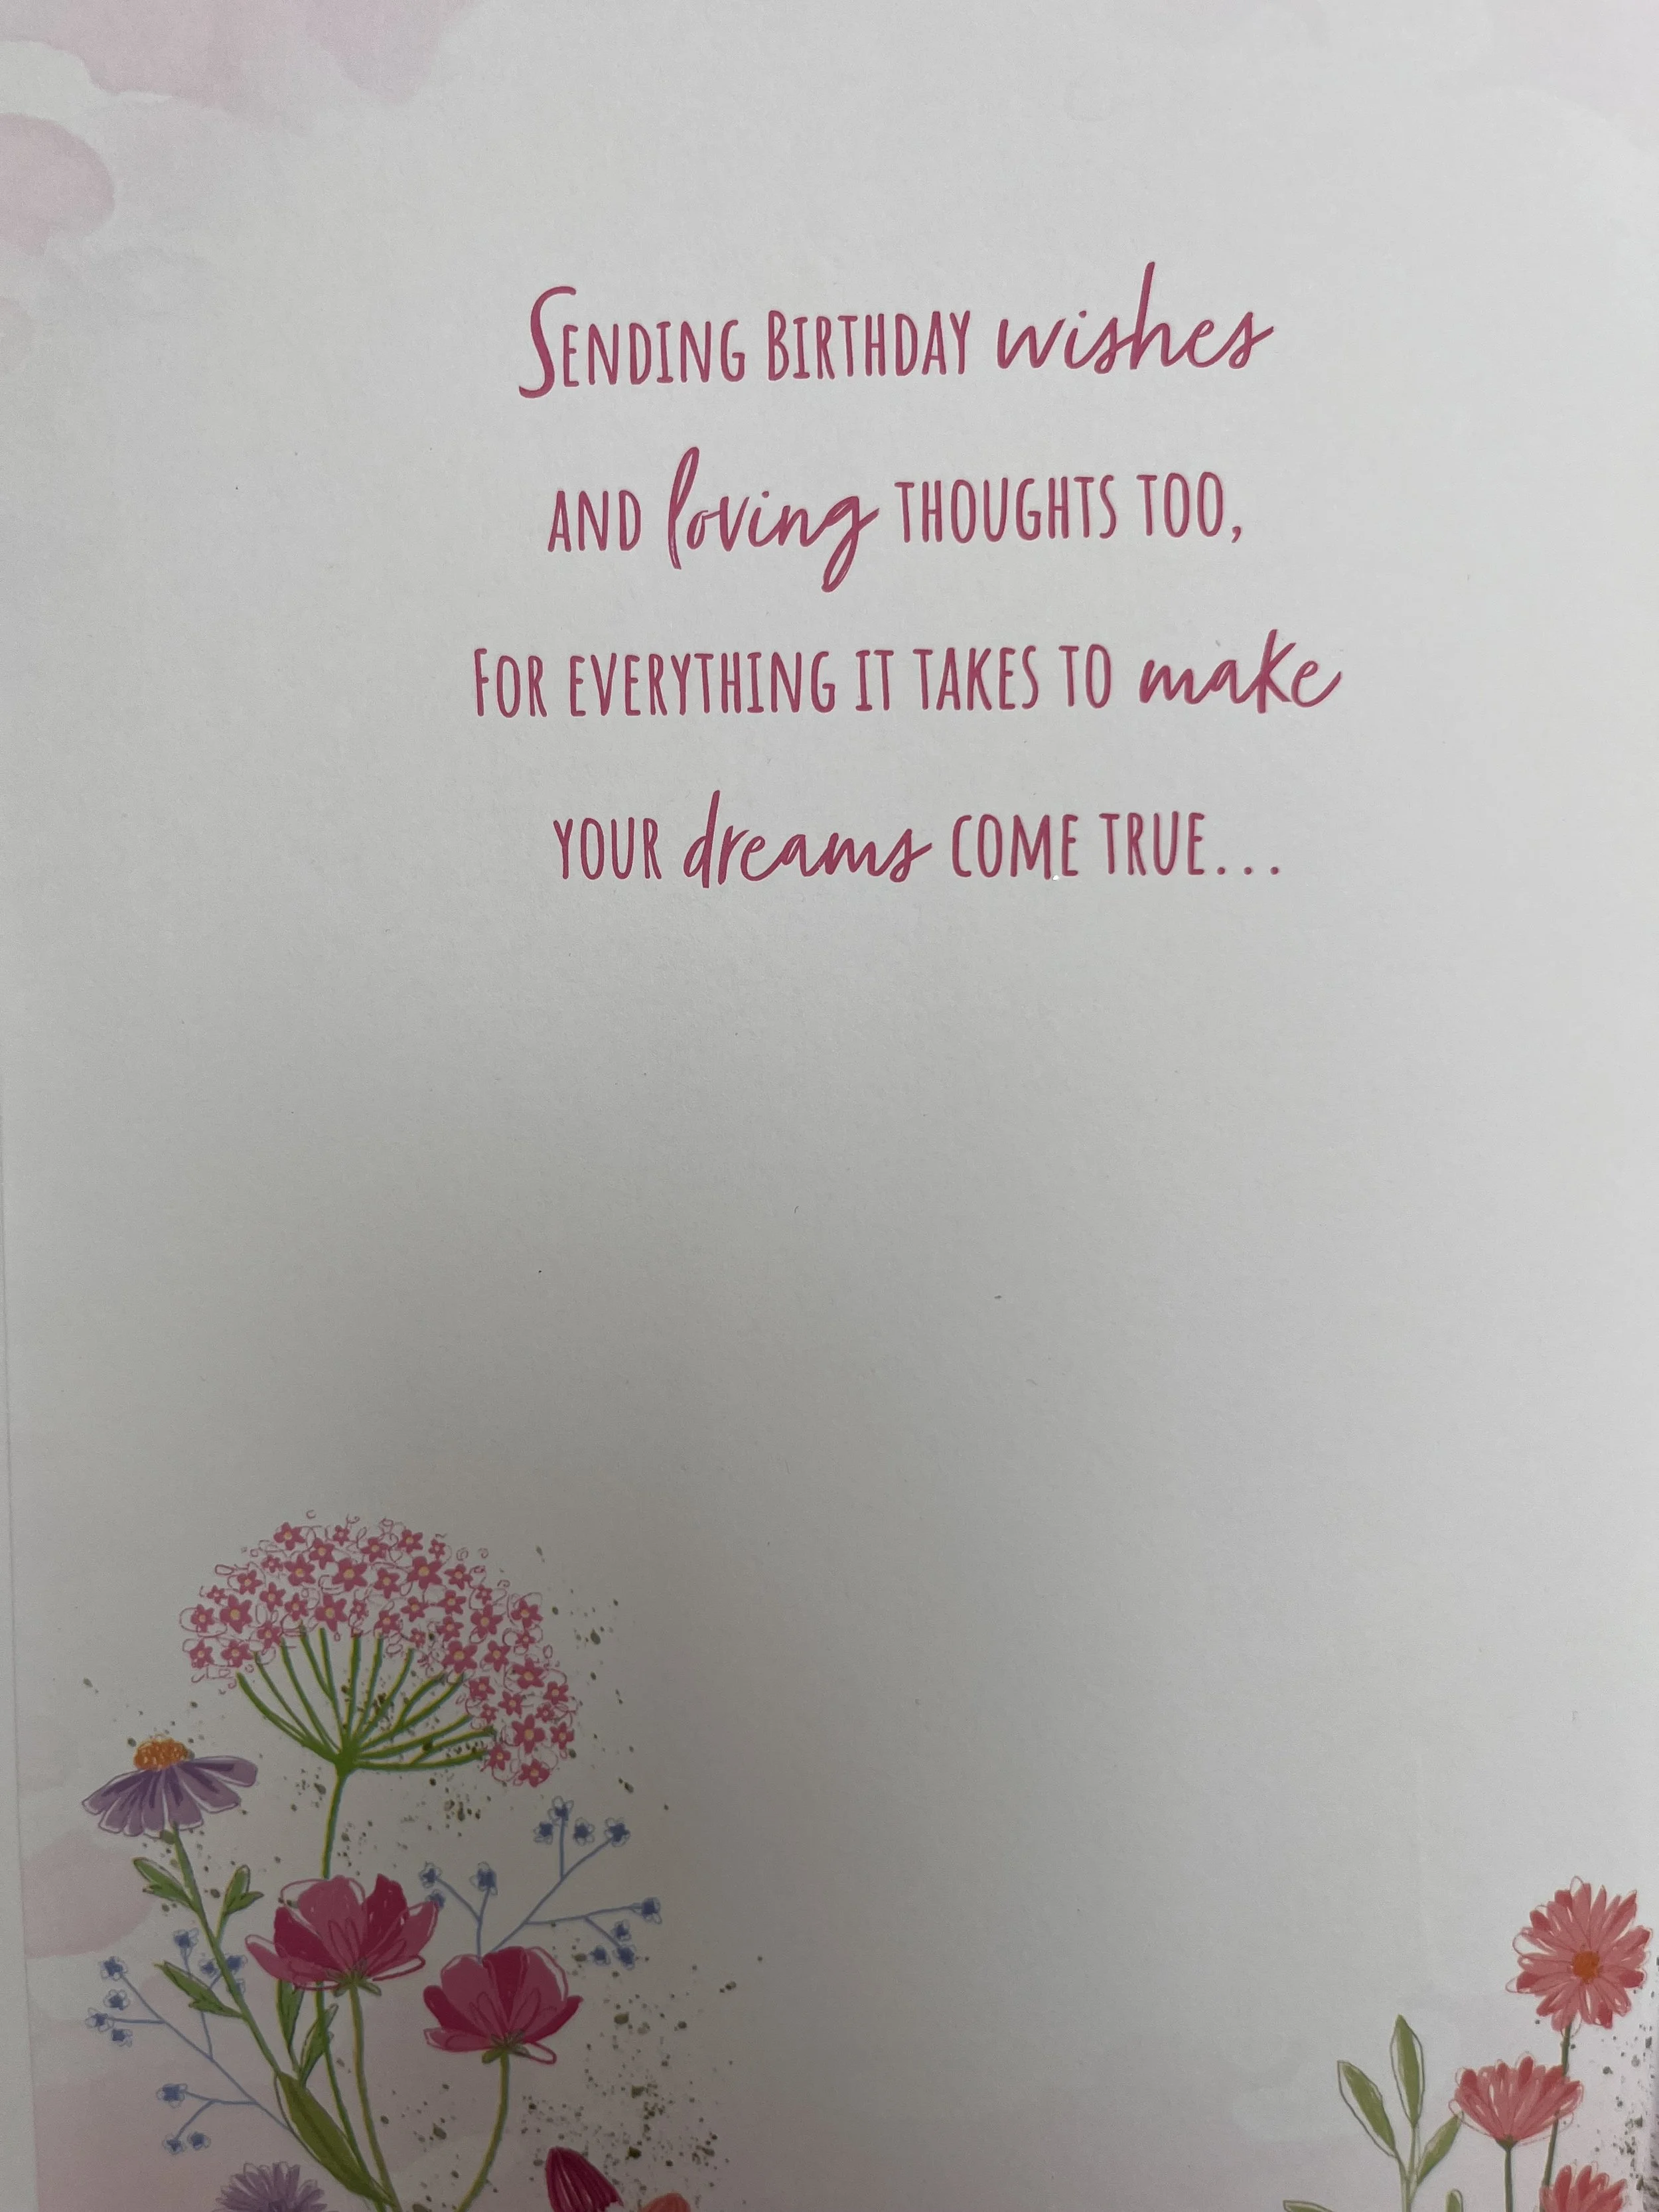 Sending birthday wishes
and loving thoughts too,
for everything it takes to make
your dreams come true...